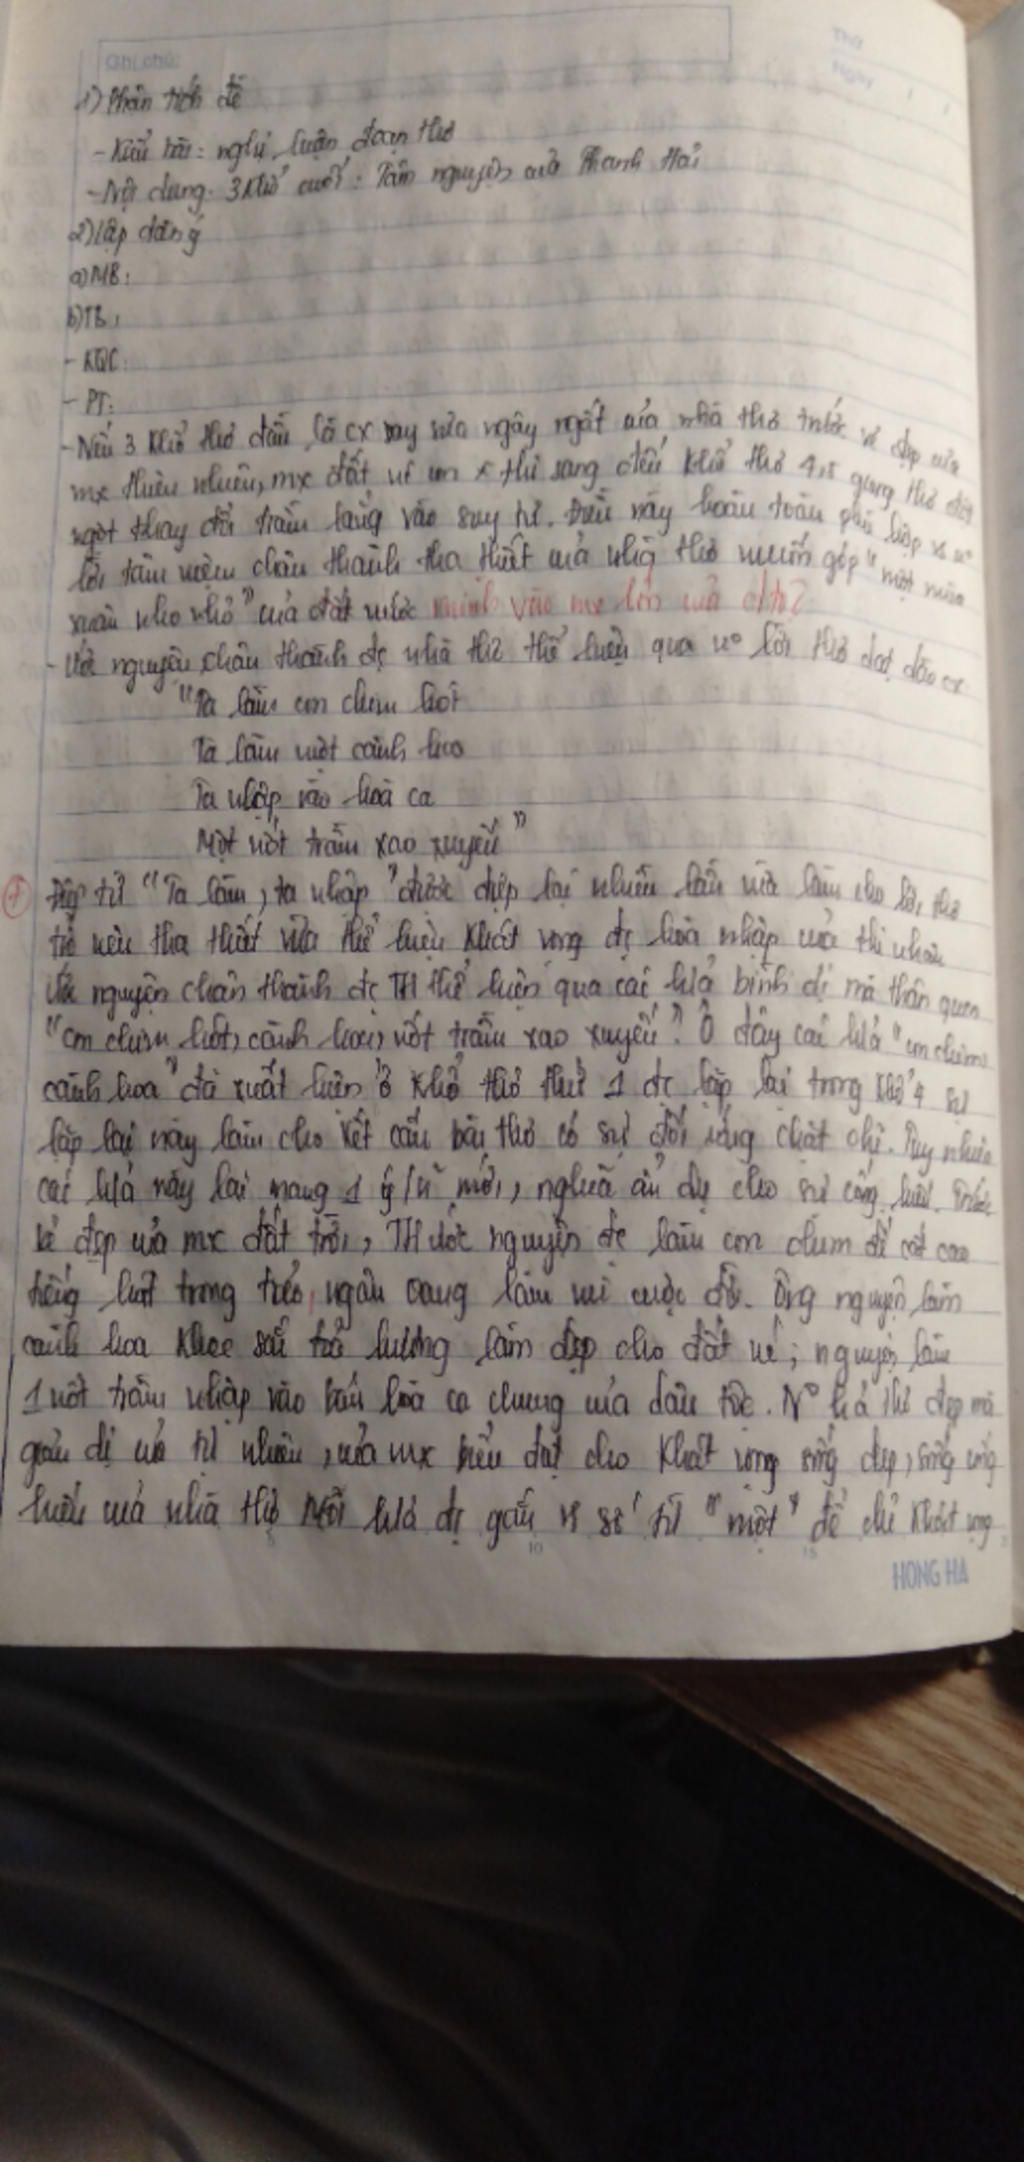 Ghi chú:
Thứ
Ngày
1) Phân tích đề
- Kiểu bài: nghị luận đoạn thơ
- Nội dung: 3 khổ cuối: Tâm nguyện của Thanh Hải
2) lập dàn ý
a) MB:
b) TB:
- KQC:
- PT:
- Nếu 3 khổ thơ đầu là cx say sưa ngây ngất của nhà thơ trước vẻ đẹp của
mx thiên nhiên, mx đất nc con thì sang đến khổ thơ 4,5 giọng thơ đột
ngột thay đổi trầm lắng vào suy tư. Điều này hoàn toàn phù hợp vs
lời tâm niệm chân thành tha thiết của nhà thơ muốn góp "một mùa
xuân nho nhỏ" của đất nước mình vào mx lớn của
- Ước nguyện chân thành đc nhà thơ thể hiện qua n° lời thơ dạt dào cx
"Ta làm con chim hót
Ta làm một cành hoa
Ta nhập vào hoà ca
Một nốt trầm xao xuyến"
Điệp từ "Ta làm, ta nhập" được điệp lại nhiều lần vừa làm cho lời thơ
trở nên tha thiết vừa thể hiện khát vọng đc hoà nhập của thi nhân
Ước nguyện chân thành đc TH thể hiện qua các h/ả bình dị mà thân quen
"con chim hót, cành hoa, nốt trầm xao xuyến". Ở đây các h/ả "con chim
cành hoa" đã xuất hiện ở khổ thơ thứ 1 đc lặp lại trong khổ 4 sự
lặp lại này làm cho kết cấu bài thơ có sự đối ứng chặt chẽ. Tuy nhiên
các h/ả này lại mang 1 ý/n mới, nghĩa ẩn dụ cho sự cống hiến. Trước
vẻ đẹp của mx đất trời, TH ước nguyện đc làm con chim để cất cao
tiếng hót trong trẻo, ngân vang làm vui cuộc đời. Ông nguyện làm
cành hoa khoe sắc toả hương làm đẹp cho đất nc; nguyện làm
1 nốt trầm nhập vào bản hoà ca chung của dân tộc. N° h/ả thơ đẹp mà
giản dị của tự nhiên, của mx biểu đạt cho khát vọng sống đẹp, sống cống
hiến của nhà thơ Mỗi h/ả đc gắn vs số từ "một" để chỉ khát vọng
5 10 15
HONG HA